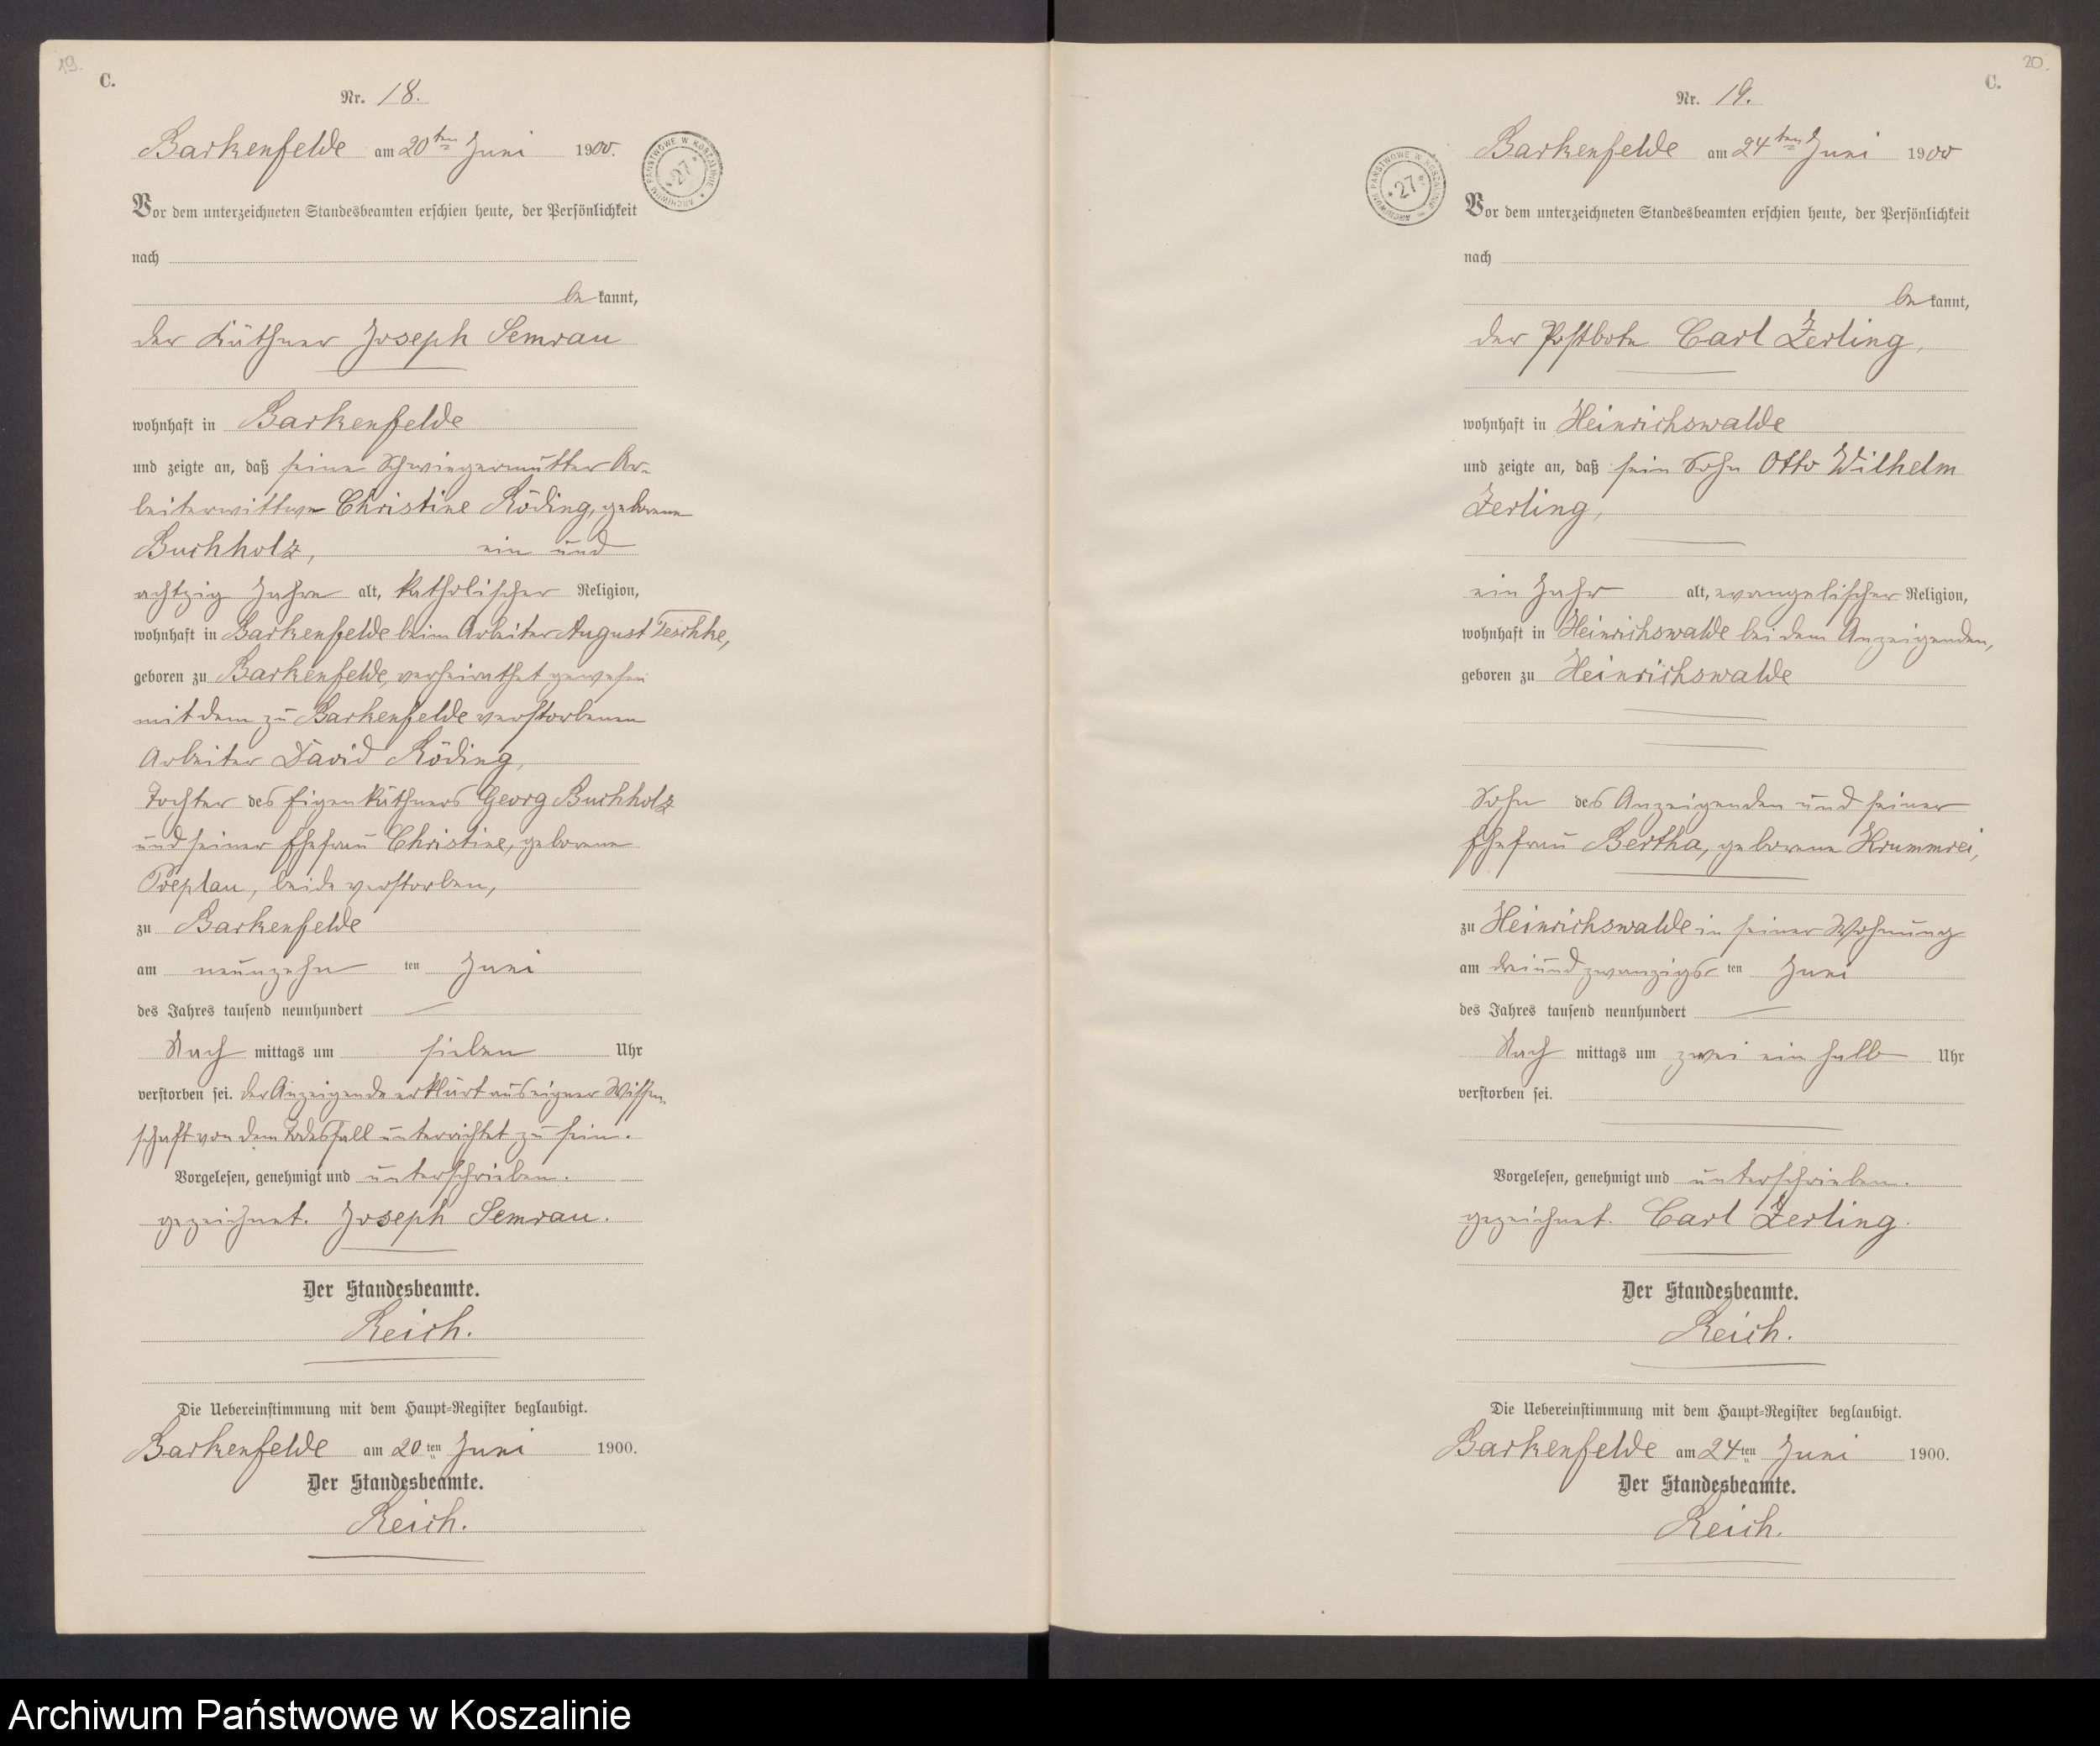 19.
C.
Nr. 18.
Barkenfelde am 20ten Juni 1900.
ARCHIWUM PAŃSTWOWE W KOSZALINIE * 27 *
Vor dem unterzeichneten Standesbeamten erschien heute, der Persönlichkeit
nach
be kannt,
der Käthner Joseph Semrau
wohnhaft in Barkenfelde
und zeigte an, daß seine Schwiegermutter Ar-
beiterwittwe Christine Röding, geborene
Buchholz, ein und
achtzig Jahre alt, katholischer Religion,
wohnhaft in Barkenfelde beim Arbeiter August Teschke,
geboren zu Barkenfelde, verheirathet gewesen
mit dem zu Barkenfelde verstorbenen
Arbeiter David Röding,
Tochter des Eigenkäthners Georg Buchholz
und seiner Ehefrau Christine, geborene
Preplau, beide verstorben,
zu Barkenfelde
am neunzehn ten Juni
des Jahres tausend neunhundert
Nach mittags um sieben Uhr
verstorben sei. Der Anzeigende erklärt aus eigner Wissen-
schaft von dem Todesfall unterrichtet zu sein.
Vorgelesen, genehmigt und unterschrieben.
gezeichnet. Joseph Semrau.
Der Standesbeamte.
Reich.
Die Uebereinstimmung mit dem Haupt-Register beglaubigt.
Barkenfelde am 20 ten Juni 1900.
Der Standesbeamte.
Reich.
20.
C.
Nr. 19.
Barkenfelde am 24ten Juni 1900
ARCHIWUM PAŃSTWOWE W KOSZALINIE * 27 *
Vor dem unterzeichneten Standesbeamten erschien heute, der Persönlichkeit
nach
be kannt,
der Postbote Carl Zerling,
wohnhaft in Heinrichswalde
und zeigte an, daß sein Sohn Otto Wilhelm
Zerling,
ein Jahr alt, evangelischer Religion,
wohnhaft in Heinrichswalde bei dem Anzeigenden,
geboren zu Heinrichswalde
Sohn des Anzeigenden und seiner
Ehefrau Bertha, geborene Krummrei,
zu Heinrichswalde in seiner Wohnung
am dreiundzwanzigs ten Juni
des Jahres tausend neunhundert
Nach mittags um zwei ein halb Uhr
verstorben sei.
Vorgelesen, genehmigt und unterschrieben.
gezeichnet. Carl Zerling.
Der Standesbeamte.
Reich.
Die Uebereinstimmung mit dem Haupt-Register beglaubigt.
Barkenfelde am 24 ten Juni 1900.
Der Standesbeamte.
Reich.
Archiwum Państwowe w Koszalinie